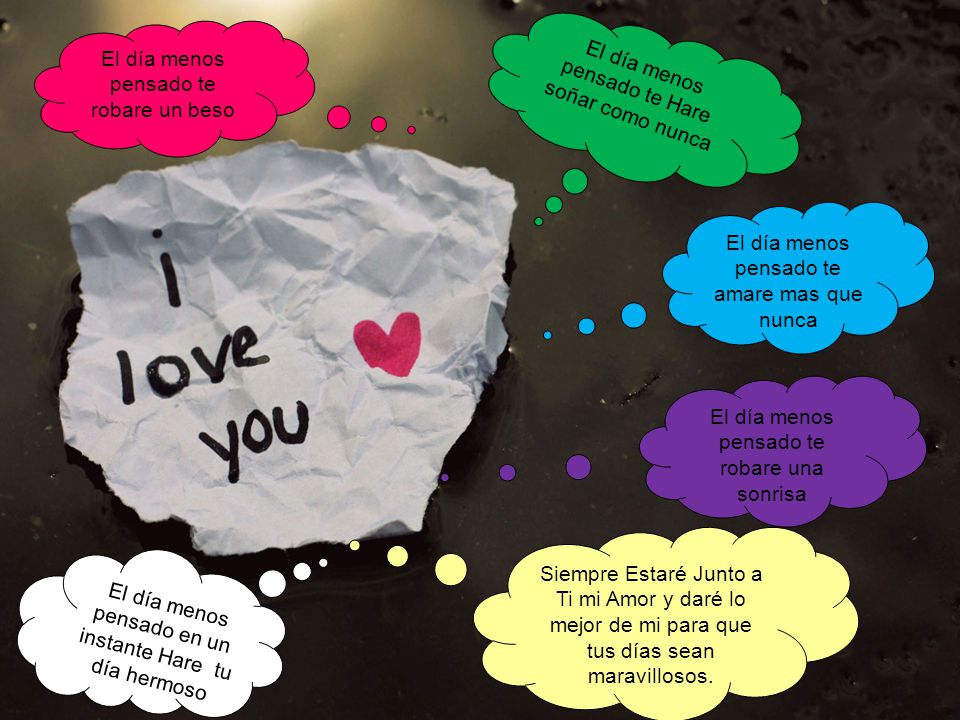 El día menos
pensado te
robare un beso
El día menos
pensado te Hare
soñar como nunca
i
love
you
El día menos
pensado te
amare mas que
nunca
El día menos
pensado te
robare una
sonrisa
Siempre Estaré Junto a
Ti mi Amor y daré lo
mejor de mi para que
tus días sean
maravillosos.
El día menos
pensado en un
instante Hare tu
día hermoso